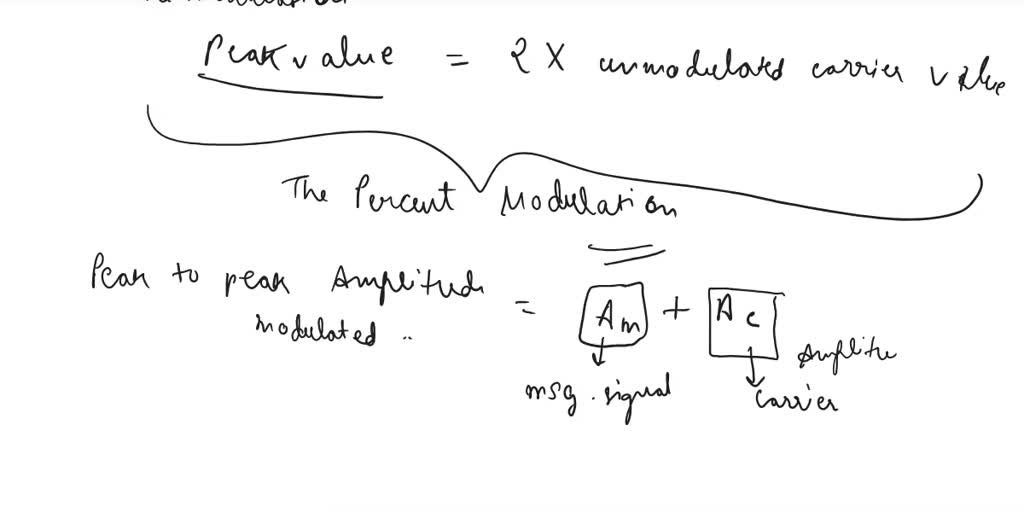 Peak value = 2 X unmodulated carrier value
The Percent Modulation
Peak to peak Amplitude = Am + Ac
modulated .. Amplitu
msg. signal carrier